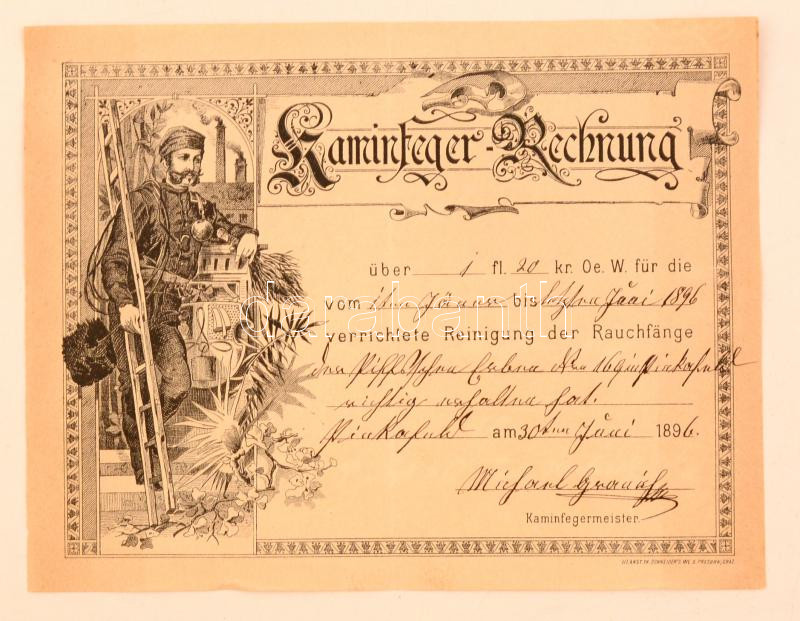 Kaminfeger-Rechnung
über 1 fl. 20 kr. Oe. W. für die
vom 1ten Jänner bis letzten Juni 1896
verrichtete Reinigung der Rauchfänge
der Erben in Pinkafeld
richtig erhalten hat.
Pinkafeld am 30ten Juni 1896.
Michael
Kaminfegermeister.
darabanth